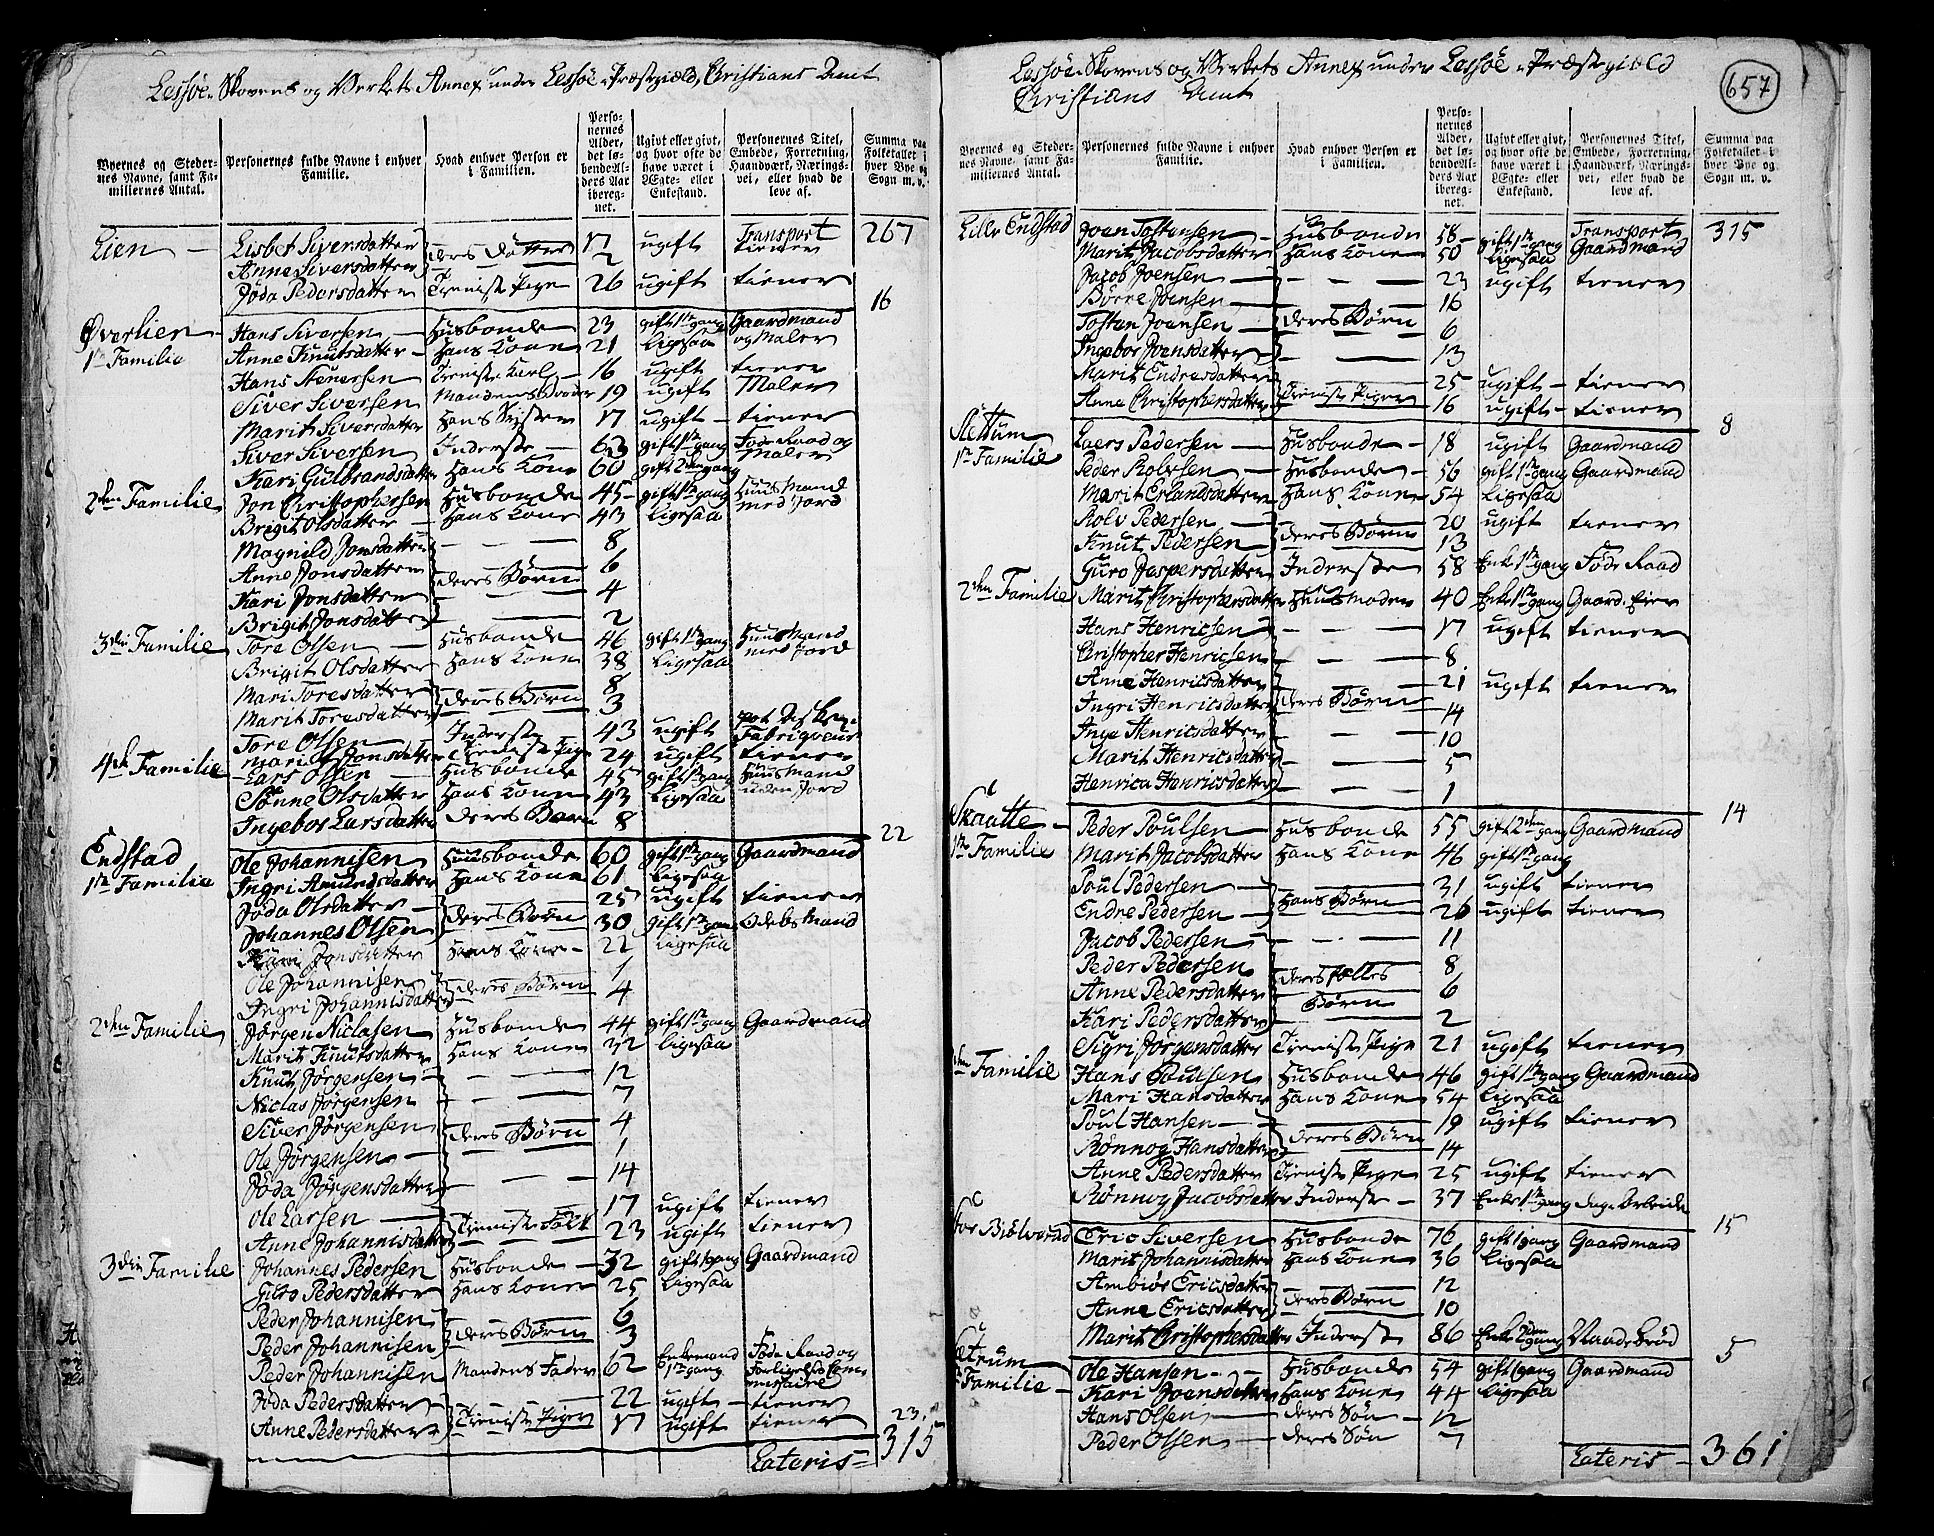 Lessøe Skovens og Werkets Annex under Lessøe Præstegield, Christians Amt
Byernes og Stedernes Navne, samt Familiernes Antal.
Personernes fulde Navne i enhver Familie.
Hvad enhver Person er i Familien.
Personernes Alder, det løbende Alders Aar iberegnet.
Ugivt eller givt, og hvor ofte de have været i Ægte- eller Enkestand.
Personernes Titel, Embede, Forretning, Haandværk, Næringsvei, eller hvad de leve af.
Summa paa Folketallet i hver Bye og Sogn m. v.
Transport 267
Lien — Lisbet Siversdatter deres Døttre 17 ugift tiener
Anne Siversdatter 2
Jøda Pedersdatter Tieniste Pige 26 ugift tiener
16
Øverlien — Hans Siversen Husbonde 23 gift 1ste gang Gaardmand
1ste Familie Anne Knutsdatter Hans Kone 21 Ligesaa og Maler
Hans Stenersen Tieniste Karl 16 ugift tiener
Siver Siversen Mandens Broder 19 ugift Maler
Marit Siversdatter Hans Syster 17 ugift tiener
Siver Siversen Inderste 63 gift 1ste gang Føde Raad og
Kari Gulbrandsdatter Hans Kone 60 gift 2den gang Maler
2den Familie Jon Christophersen Husbonde 45 gift 1ste gang Huus Mand
Brigit Olsdatter Hans Kone 43 Ligesaa med Jord
Magnild Jonsdatter 8
Anne Jonsdatter deres Børn 6
Kari Jonsdatter 4
Brigit Jonsdatter 2
3die Familie Tore Olsen Husbonde 46 gift 1ste gang Huus Mand
Brigit Olsdatter Hans Kone 38 Ligesaa med Jord
Mari Toresdatter deres Børn 8
Marit Toresdatter 3
Tore Olsen Inderste 43 ugift Fabriqveur
Mari Jonsdatter Tieniste Pige 24 ugift tiener
4de Familie Lars Olsen Husbonde 45 gift 1ste gang Huus Mand
Sønne Olsdatter Hans Kone 43 Ligesaa uden Jord
Ingebor Larsdatter deres Barn 8
22
Endstad Ole Johannisen Husbonde 60 gift 1ste gang Gaardmand
1ste Familie Ingri Amundsdatter Hans Kone 61 Ligesaa
Jøda Olsdatter deres Børn 25 ugift tiener
Johannes Olsen 30 gift 1ste gang Odels Mand
Kari Jonsdatter Hans Kone 22 Ligesaa
Ole Johannisen deres Børn 1
Ingri Johannisdatter 4
2den Familie Jørgen Niclasen Husbonde 44 gift 1ste gang Gaardmand
Marit Knutsdatter Hans Kone 32 Ligesaa
Knut Jørgensen 12
Niclas Jørgensen 7
Siver Jørgensen deres Børn 4
Ole Jørgensen 1
Jøda Jørgensdatter 14
Ole Larsen Tieniste Folk 17 ugift tiener
Anne Johannisdatter 23 ugift tiener
3die Familie Johannes Pedersen Husbonde 32 gift 1 gang Gaardmand
Pedersdatter Hans Kone 25 Ligesaa
Peder Johannisen deres Børn 6
Peder Johannisen 3
Peder Johannisen Mandens Fader 62 Enkemand 1ste gang Føde Raad og Forligelses Commissaire
Jøda Pedersdatter Tieniste Piger 22 ugift tiener
Anne Pedersdatter 17 ugift tiener
23
Lateris 315
657
Lessøe Skovens og Werkets Annex under Lessøe Præstegield
Christians Amt
Byernes og Stedernes Navne, samt Familiernes Antal.
Personernes fulde Navne i enhver Familie.
Hvad enhver Person er i Familien.
Personernes Alder, det løbende Alders Aar iberegnet.
Ugivt eller givt, og hvor ofte de have været i Ægte- eller Enkestand.
Personernes Titel, Embede, Forretning, Haandværk, Næringsvei, eller hvad de leve af.
Summa paa Folketallet i hver Bye og Sogn m. v.
Transport 315
Lille Endstad Joen Tostensen Husbonde 58 gift 1ste gang Gaardmand
Marit Jacobsdatter Hans Kone 50 Ligesaa
Jacob Joensen 23 ugift tiener
Børre Joensen 16
Tostan Joensen deres Børn 6
Ingebor Joensdatter 13
Marit Endresdatter Tieniste Piger 25 ugift tiener
Anne Christophersdatter 16 ugift tiener
8
Slettum Laers Pedersen Husbonde 18 ugift Gaardmand
1ste Familie Peder Rolvsen Husbonde 56 gift 1ste gang Gaardmand
Marit Erlandsdatter Hans Kone 54 Ligesaa
Rolv Pedersen deres Børn 20 ugift tiener
Knut Pedersen 13
Guro Jaspersdatter Inderste 58 Enke 1ste gang Føde Raad
2den Familie Marit Christophersdatter Huusmoder 40 Enke 1ste gang Gaard Eier
Hans Henricsen 17 ugift tiener
Christopher Henricsen 8
Anne Henricsdatter 21 ugift tiener
Ingri Henricsdatter deres Børn 14
Inge Henricsdatter 10
Marit Henricsdatter 5
Henrica Henricsdatter 1
14
Skøtte Peder Poulsen Husbonde 55 gift 2den gang Gaardmand
1ste Familie Marit Jacobsdatter Hans Kone 46 gift 1ste gang
Poul Pedersen Hans Børn 31 ugift tiener
Endre Pedersen 26 ugift tiener
Jacob Pedersen 11
Peder Pedersen deres fælles 8
Anne Pedersdatter Børn 6
Kari Pedersdatter 2
Sigri Jørgensdatter Tieniste Pige 21 ugift tiener
den Familie Hans Poulsen Husbonde 46 gift 1ste gang Gaardmand
Mari Hansdatter Hans Kone 54 Ligesaa
Poul Hansen deres Børn 19 ugift tiener
Rønnog Hansdatter 14
Anne Pedersdatter Tieniste Pige 25 ugift tiener
Rønnog Jacobsdatter Inderste 37 Enke 1ste gang Dag Arbeide
15
Eric Siversen Husbonde 76 gift 1 gang Gaardmand
Marit Johannisdatter Hans Kone 36 Ligesaa
Ambiør Ericsdatter deres Børn 12
Anne Ericsdatter 10
Marit Christophersdatter Inderste 86 Enke 2den gang Naade Brød
5
Familie Ole Hansen Husbonde 54 gift 1 gang Gaardmand
Kari Joensdatter Hans Kone 44 Ligesaa
Hans Olsen deres Søn 12
Peder Olsen deres Søn 7
Lateris 361